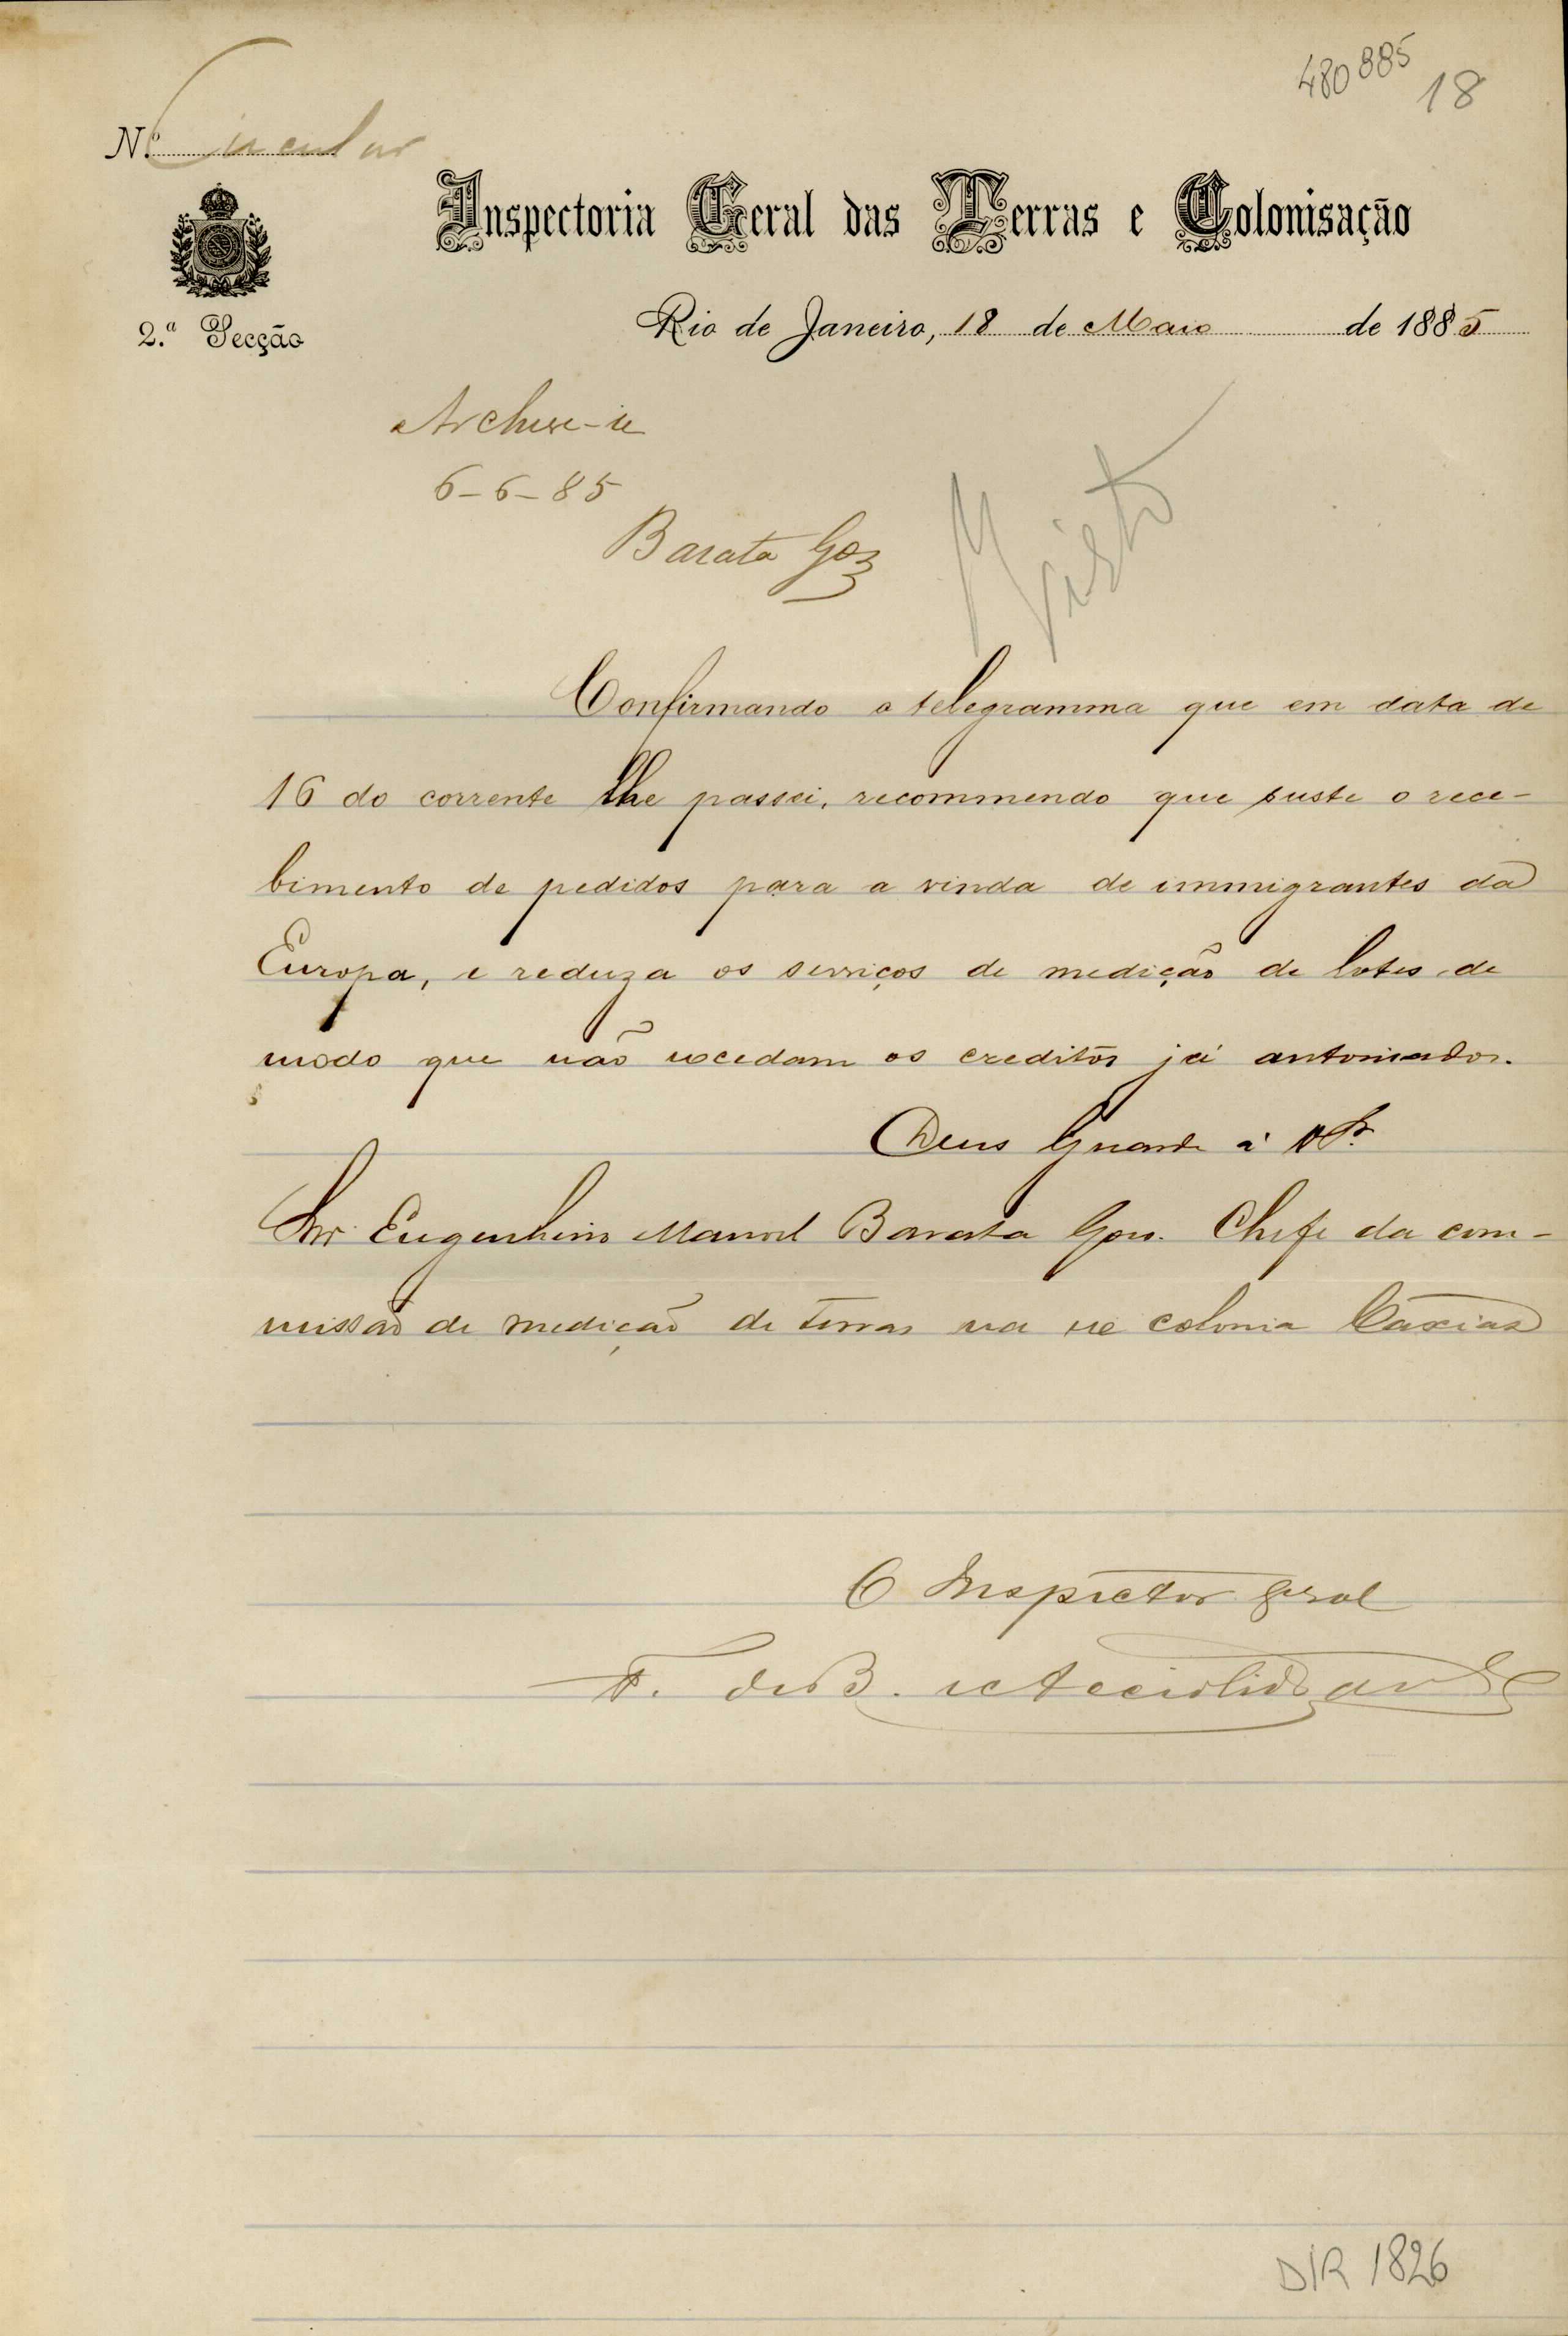 480885
18
N.º Circular
Inspectoria Geral das Terras e Colonisação
2.ª Secção
Rio de Janeiro, 18 de Maio de 1885
Archive-se
6-6-85
Barata Goz
Visto
Confirmando o telegramma que em data de
16 do corrente lhe passei, recommendo que suste o rece-
bimento de pedidos para a vinda de immigrantes da
Europa, e reduza os serviços de medição de lotes de
modo que não excedam os creditos já autorisados.
Deus Guarde a
Snr Engenheiro Manoel Barata Goes. Chefe da com-
missão de medição de terras na colonia Caxias
O Inspector geral
F. de B. e Accioli de
DIR 1826